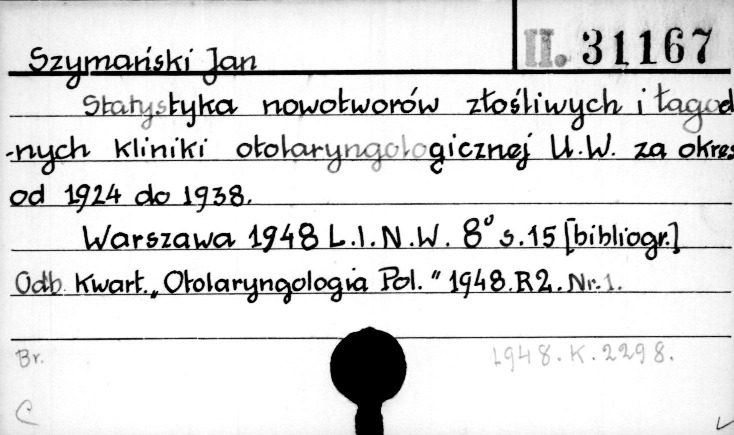 II. 31167
Szymański Jan
Statystyka nowotworów złośliwych i łagod
-nych kliniki otolaryngologicznej U.W. za okres
od 1924 do 1938.
Warszawa 1948 L.I.N.W. 8° s.15 [bibliogr.]
Odb. Kwart. „Otolaryngologia Pol." 1948.R2.Nr.1.
Br. 1948.K.2298.
C